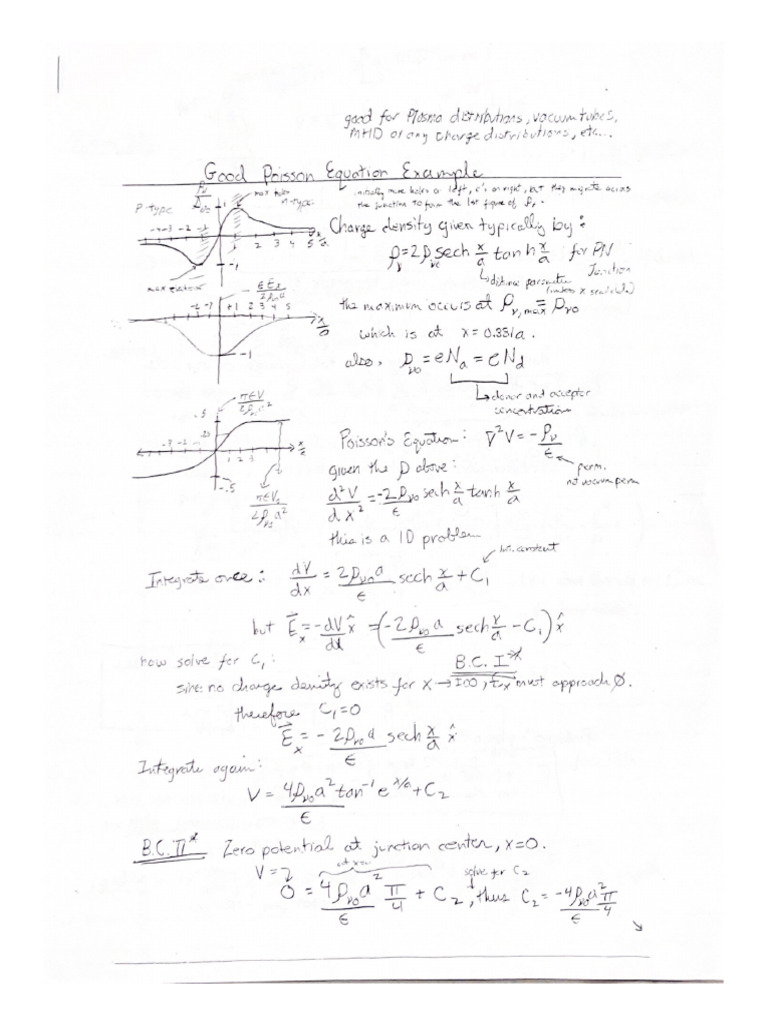 good for Plasma distributions, vacuum tubes,
MHD or any charge distributions, etc...
Good Poisson Equation Example
initially more holes on left, e's on right, but they migrate across
the junction to form the 1st figure of ρᵥ.
P-type
ρᵥ/ρᵥ₀
max holes
n-type
1
-4 -3 -2 -1
2 3 4 5 x/a
-1
max electrons
Charge density given typically by:
ρᵥ = 2ρᵥ₀ sech x/a tanh x/a for PN
Junction
distance parameter
the maximum occurs at ρᵥ,max ≡ ρᵥ₀
which is at x = 0.881a.
also, ρᵥ₀ = eNₐ = eN_d
donor and acceptor
concentrations
ϵEₓ/2ρᵥ₀a
-2 -1 +1 2 3 4 5
x/a
-1
πϵV/2ρᵥ₀a²
.5
-3 -2 -1
1 2 3
x/a
-.5
Poisson's Equation: ∇²V = -ρᵥ/ϵ
perm.
not vacuum perm
given the ρ above:
d²V/dx² = -2ρᵥ₀/ϵ sech x/a tanh x/a
this is a 1D problem
int. constant
Integrate once: dV/dx = 2ρᵥ₀a/ϵ sech x/a + C₁
but E⃗ₓ = -dV/dx x̂ = (-2ρᵥ₀a/ϵ sech x/a - C₁) x̂
now solve for C₁:
B.C. I*
since no charge density exists for x → ±∞, Eₓ must approach 0.
therefore C₁ = 0
E⃗ₓ = -2ρᵥ₀a/ϵ sech x/a x̂
Integrate again:
V = 4ρᵥ₀a²/ϵ tan⁻¹ e^(x/a) + C₂
B.C. II* Zero potential at junction center, x=0.
V =
at x=0
solve for C₂
0 = 4ρᵥ₀a²/ϵ π/4 + C₂, thus C₂ = -4ρᵥ₀a²/ϵ π/4